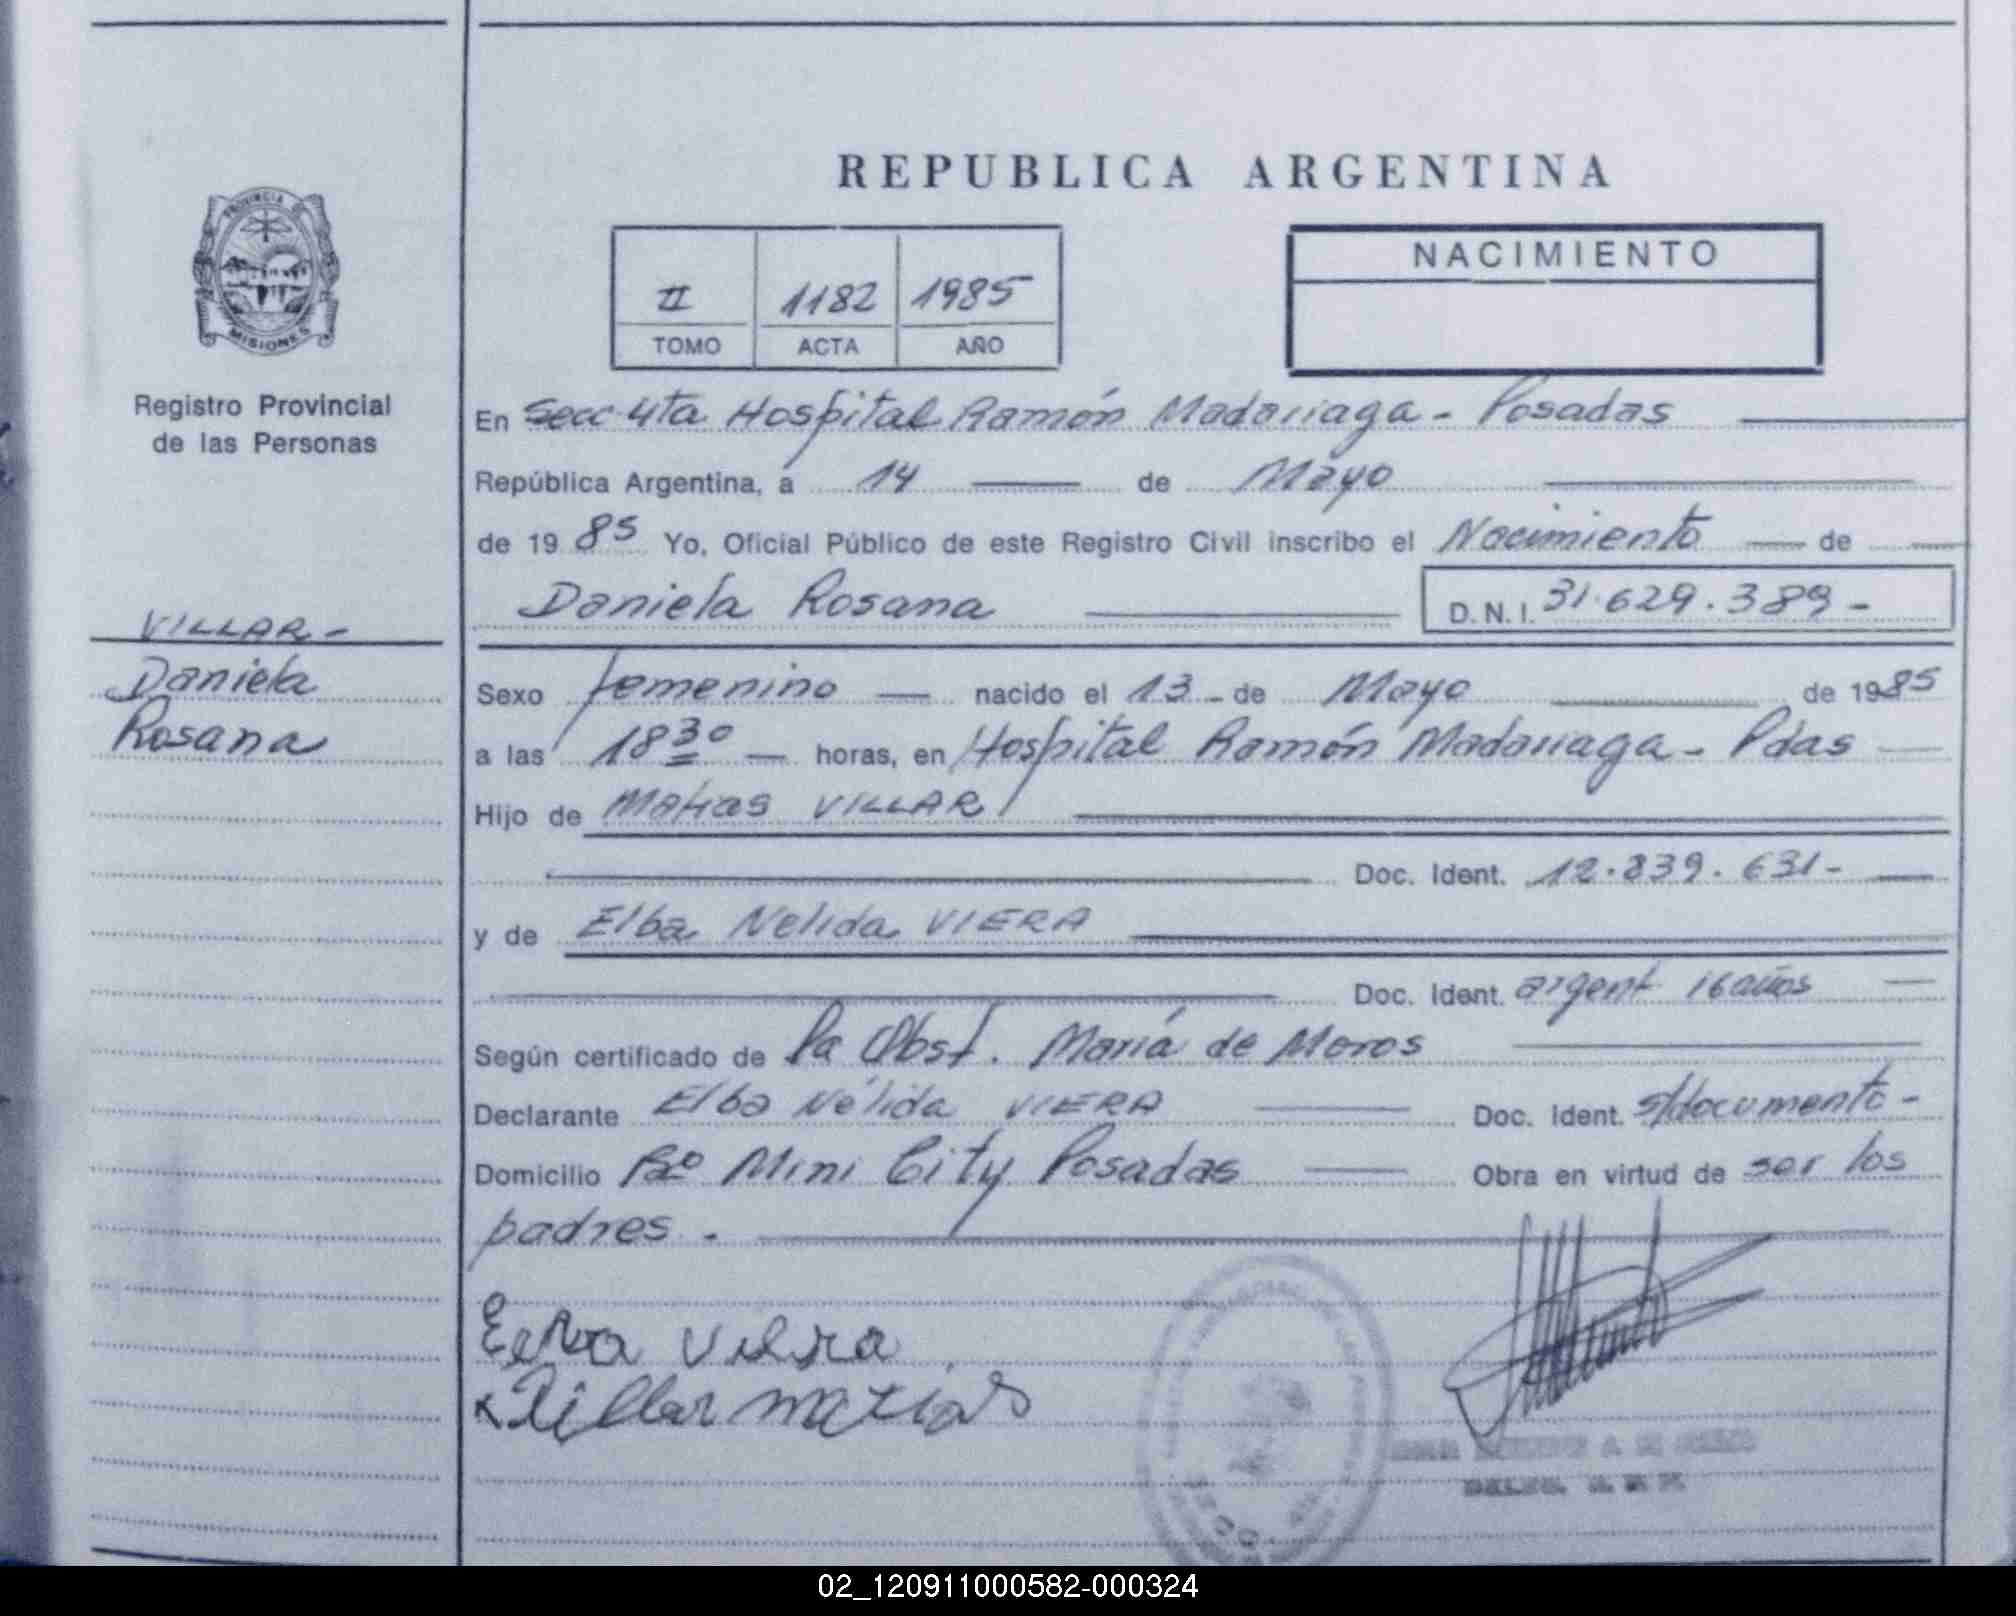 REPUBLICA ARGENTINA
PROVINCIA DE
MISIONES
Registro Provincial
de las Personas
II 1182 1985
TOMO ACTA AÑO
NACIMIENTO
En Secc 4ta Hospital Ramón Madariaga - Posadas
República Argentina, a 14 de Mayo
de 1985 Yo, Oficial Público de este Registro Civil inscribo el Nacimiento de
Daniela Rosana D.N.I. 31.629.389-
VILLAR-
Daniela
Rosana
Sexo femenino nacido el 13 - de Mayo de 1985
a las 18 30 horas, en Hospital Ramón Madariaga - Pdas
Hijo de Matias VILLAR
Doc. Ident. 12.839.631-
y de Elba Nelida VIERA
Doc. Ident. argent 16 años
Según certificado de la Obst. María de Moros
Declarante Elba Nélida VIERA Doc. Ident. s/documento-
Domicilio Bº Mini City Posadas Obra en virtud de ser los
padres.
Elba Viera
x Villar matias
02_120911000582-000324